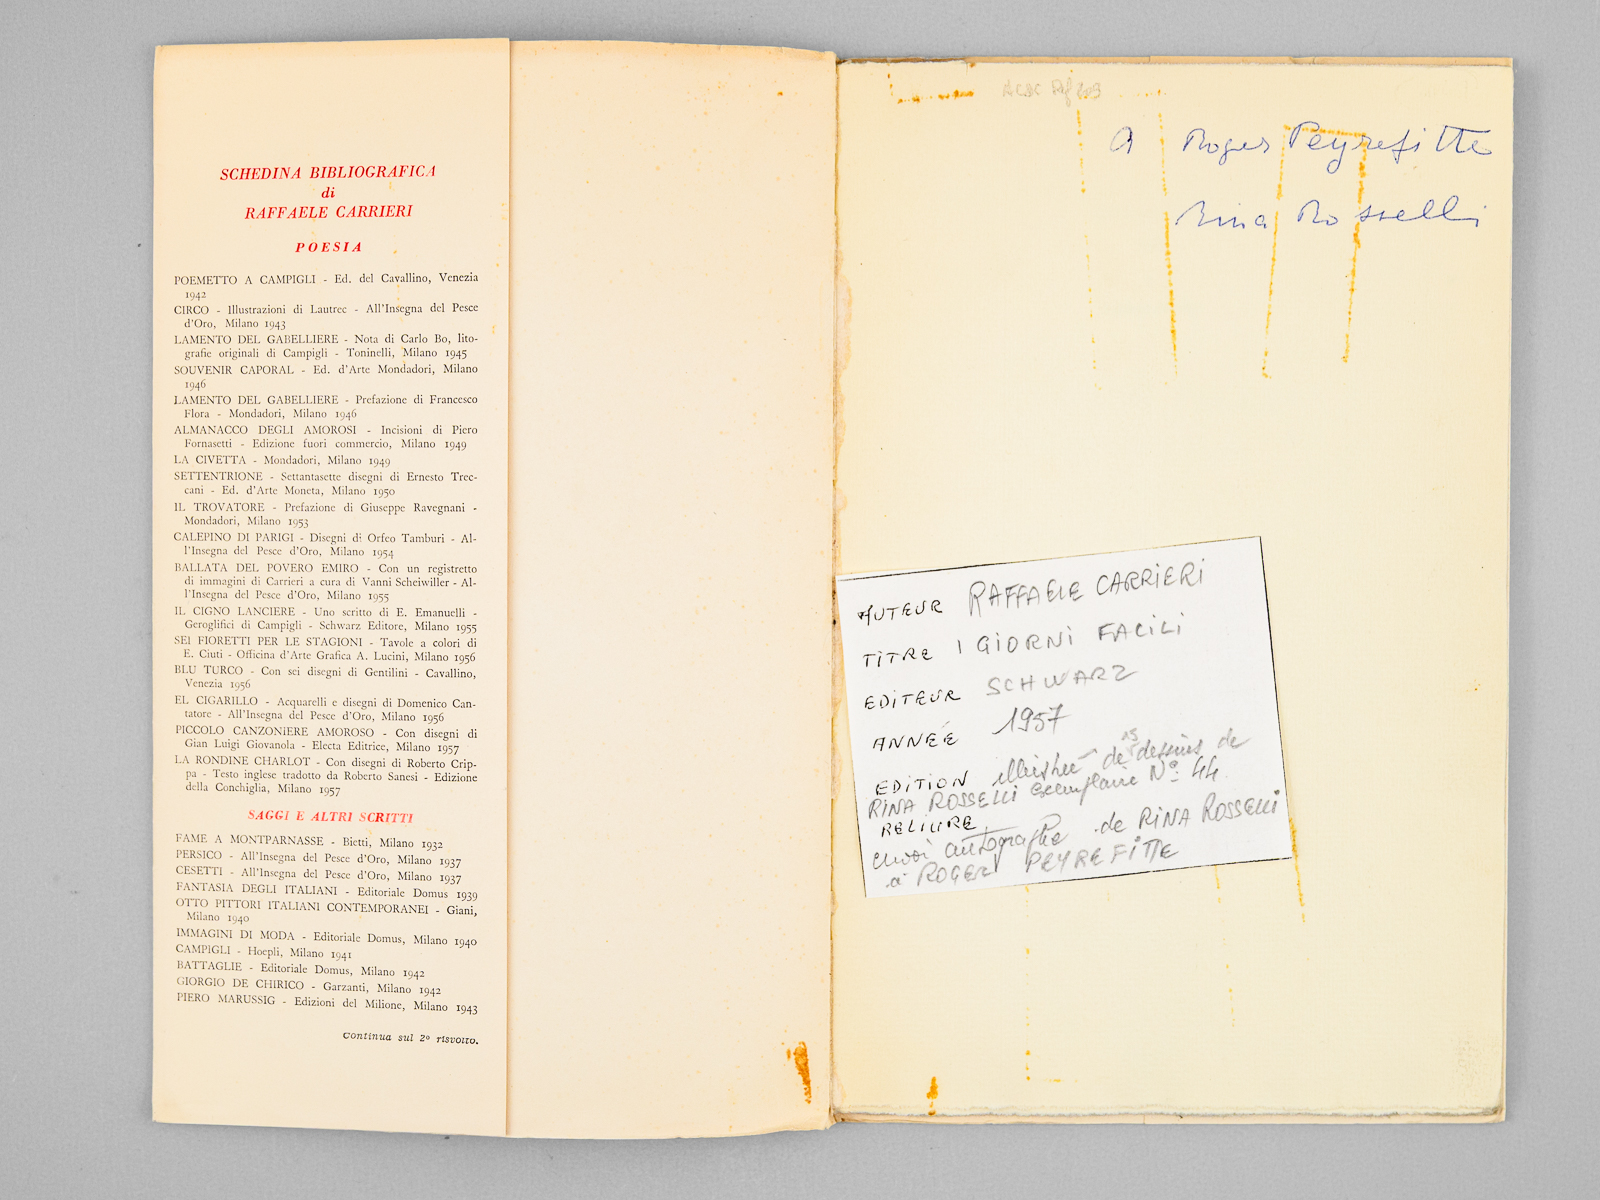 SCHEDINA BIBLIOGRAFICA
di
RAFFAELE CARRIERI
POESIA
POEMETTO A CAMPIGLI - Ed. del Cavallino, Venezia
1942
CIRCO - Illustrazioni di Lautrec - All'Insegna del Pesce
d'Oro, Milano 1943
LAMENTO DEL GABELLIERE - Nota di Carlo Bo, lito-
grafie originali di Campigli - Toninelli, Milano 1945
SOUVENIR CAPORAL - Ed. d'Arte Mondadori, Milano
1946
LAMENTO DEL GABELLIERE - Prefazione di Francesco
Flora - Mondadori, Milano 1946
ALMANACCO DEGLI AMOROSI - Incisioni di Piero
Fornasetti - Edizione fuori commercio, Milano 1949
LA CIVETTA - Mondadori, Milano 1949
SETTENTRIONE - Settantasette disegni di Ernesto Trec-
cani - Ed. d'Arte Moneta, Milano 1950
IL TROVATORE - Prefazione di Giuseppe Ravegnani -
Mondadori, Milano 1953
CALEPINO DI PARIGI - Disegni di Orfeo Tamburi - Al-
l'Insegna del Pesce d'Oro, Milano 1954
BALLATA DEL POVERO EMIRO - Con un registretto
di immagini di Carrieri a cura di Vanni Scheiwiller - Al-
l'Insegna del Pesce d'Oro, Milano 1955
IL CIGNO LANCIERE - Uno scritto di E. Emanuelli -
Geroglifici di Campigli - Schwarz Editore, Milano 1955
SEI FIORETTI PER LE STAGIONI - Tavole a colori di
E. Ciuti - Officina d'Arte Grafica A. Lucini, Milano 1956
BLU TURCO - Con sei disegni di Gentilini - Cavallino,
Venezia 1956
EL CIGARILLO - Acquarelli e disegni di Domenico Can-
tatore - All'Insegna del Pesce d'Oro, Milano 1956
PICCOLO CANZONIERE AMOROSO - Con disegni di
Gian Luigi Giovanola - Electa Editrice, Milano 1957
LA RONDINE CHARLOT - Con disegni di Roberto Crip-
pa - Testo inglese tradotto da Roberto Sanesi - Edizione
della Conchiglia, Milano 1957
SAGGI E ALTRI SCRITTI
FAME A MONTPARNASSE - Bietti, Milano 1932
PERSICO - All'Insegna del Pesce d'Oro, Milano 1937
CESETTI - All'Insegna del Pesce d'Oro, Milano 1937
FANTASIA DEGLI ITALIANI - Editoriale Domus 1939
OTTO PITTORI ITALIANI CONTEMPORANEI - Giani,
Milano 1940
IMMAGINI DI MODA - Editoriale Domus, Milano 1940
CAMPIGLI - Hoepli, Milano 1941
BATTAGLIE - Editoriale Domus, Milano 1942
GIORGIO DE CHIRICO - Garzanti, Milano 1942
PIERO MARUSSIG - Edizioni del Milione, Milano 1943
Continua sul 2º risvolto.
A Roger Peyrefitte
Rina Rosselli
AUTEUR RAFFAELE CARRIERI
TITRE I GIORNI FACILI
EDITEUR SCHWARZ
ANNEE 1957
EDITION illustrée de 15 dessins de
RINA ROSSELLI exemplaire Nº 44
RELIURE
envoi autographe de RINA ROSSELLI
à ROGER PEYREFITTE